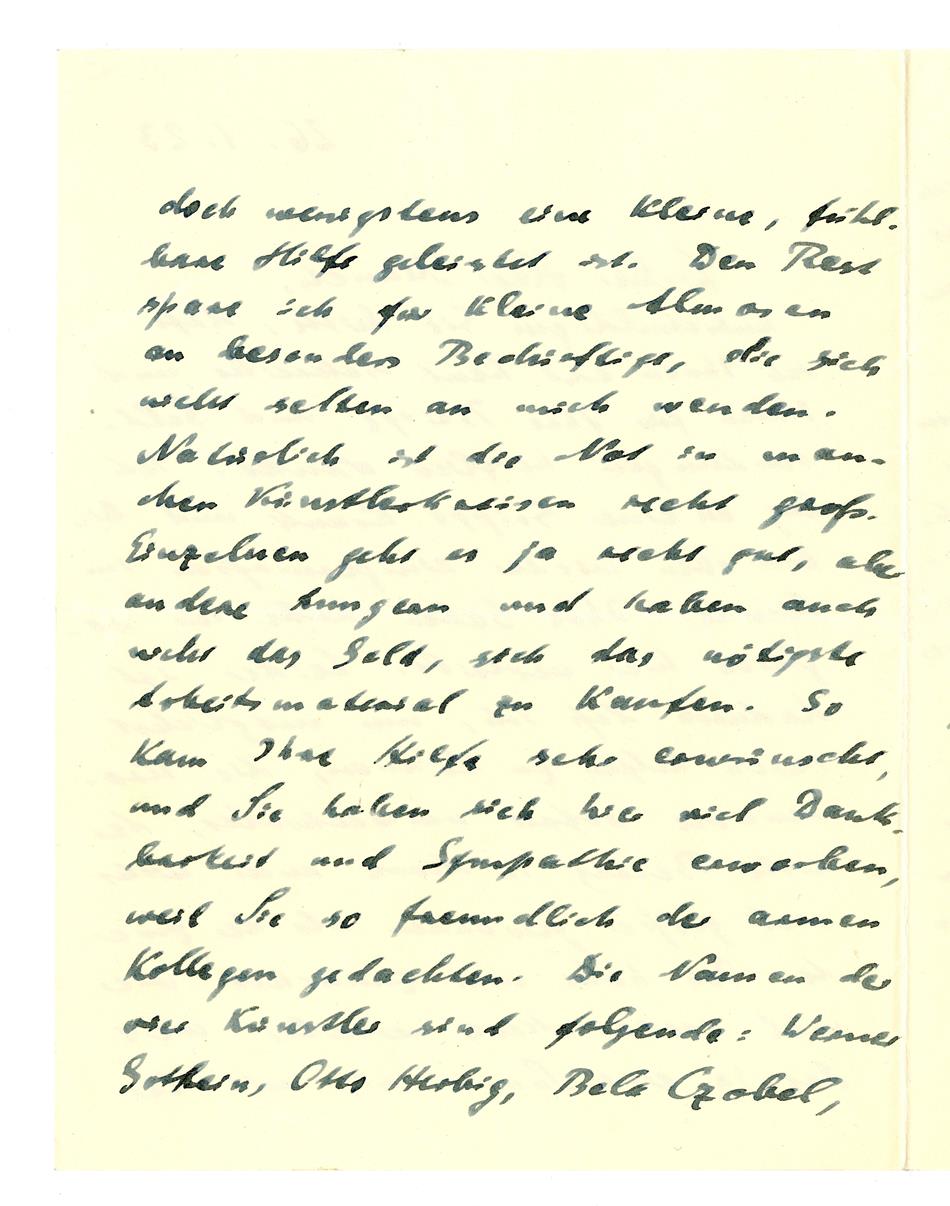 doch wenigstens eine kleine, fühl-
bare Hilfe geleistet ist. Den Rest
spare ich für kleine Almosen
an besonders Bedürftige, die sich
nicht selten an mich wenden.
Natürlich ist die Not in man-
chen Künstlerkreisen recht groß.
Einzelnen geht es ja recht gut, aber
andere hungern und haben auch
nicht das Geld, sich das nötigste
Arbeitsmaterial zu kaufen. So
kam Ihre Hilfe sehr erwünscht,
und Sie haben sich hier viel Dank-
barkeit und Sympathie erworben,
weil Sie so freundlich der armen
Kollegen gedachten. Die Namen der
vier Künstler sind folgende: Werner
Gothein, Otto Herbig, Bela Czobel,